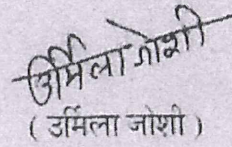 उर्मिला जोशी
( उर्मिला जोशी )